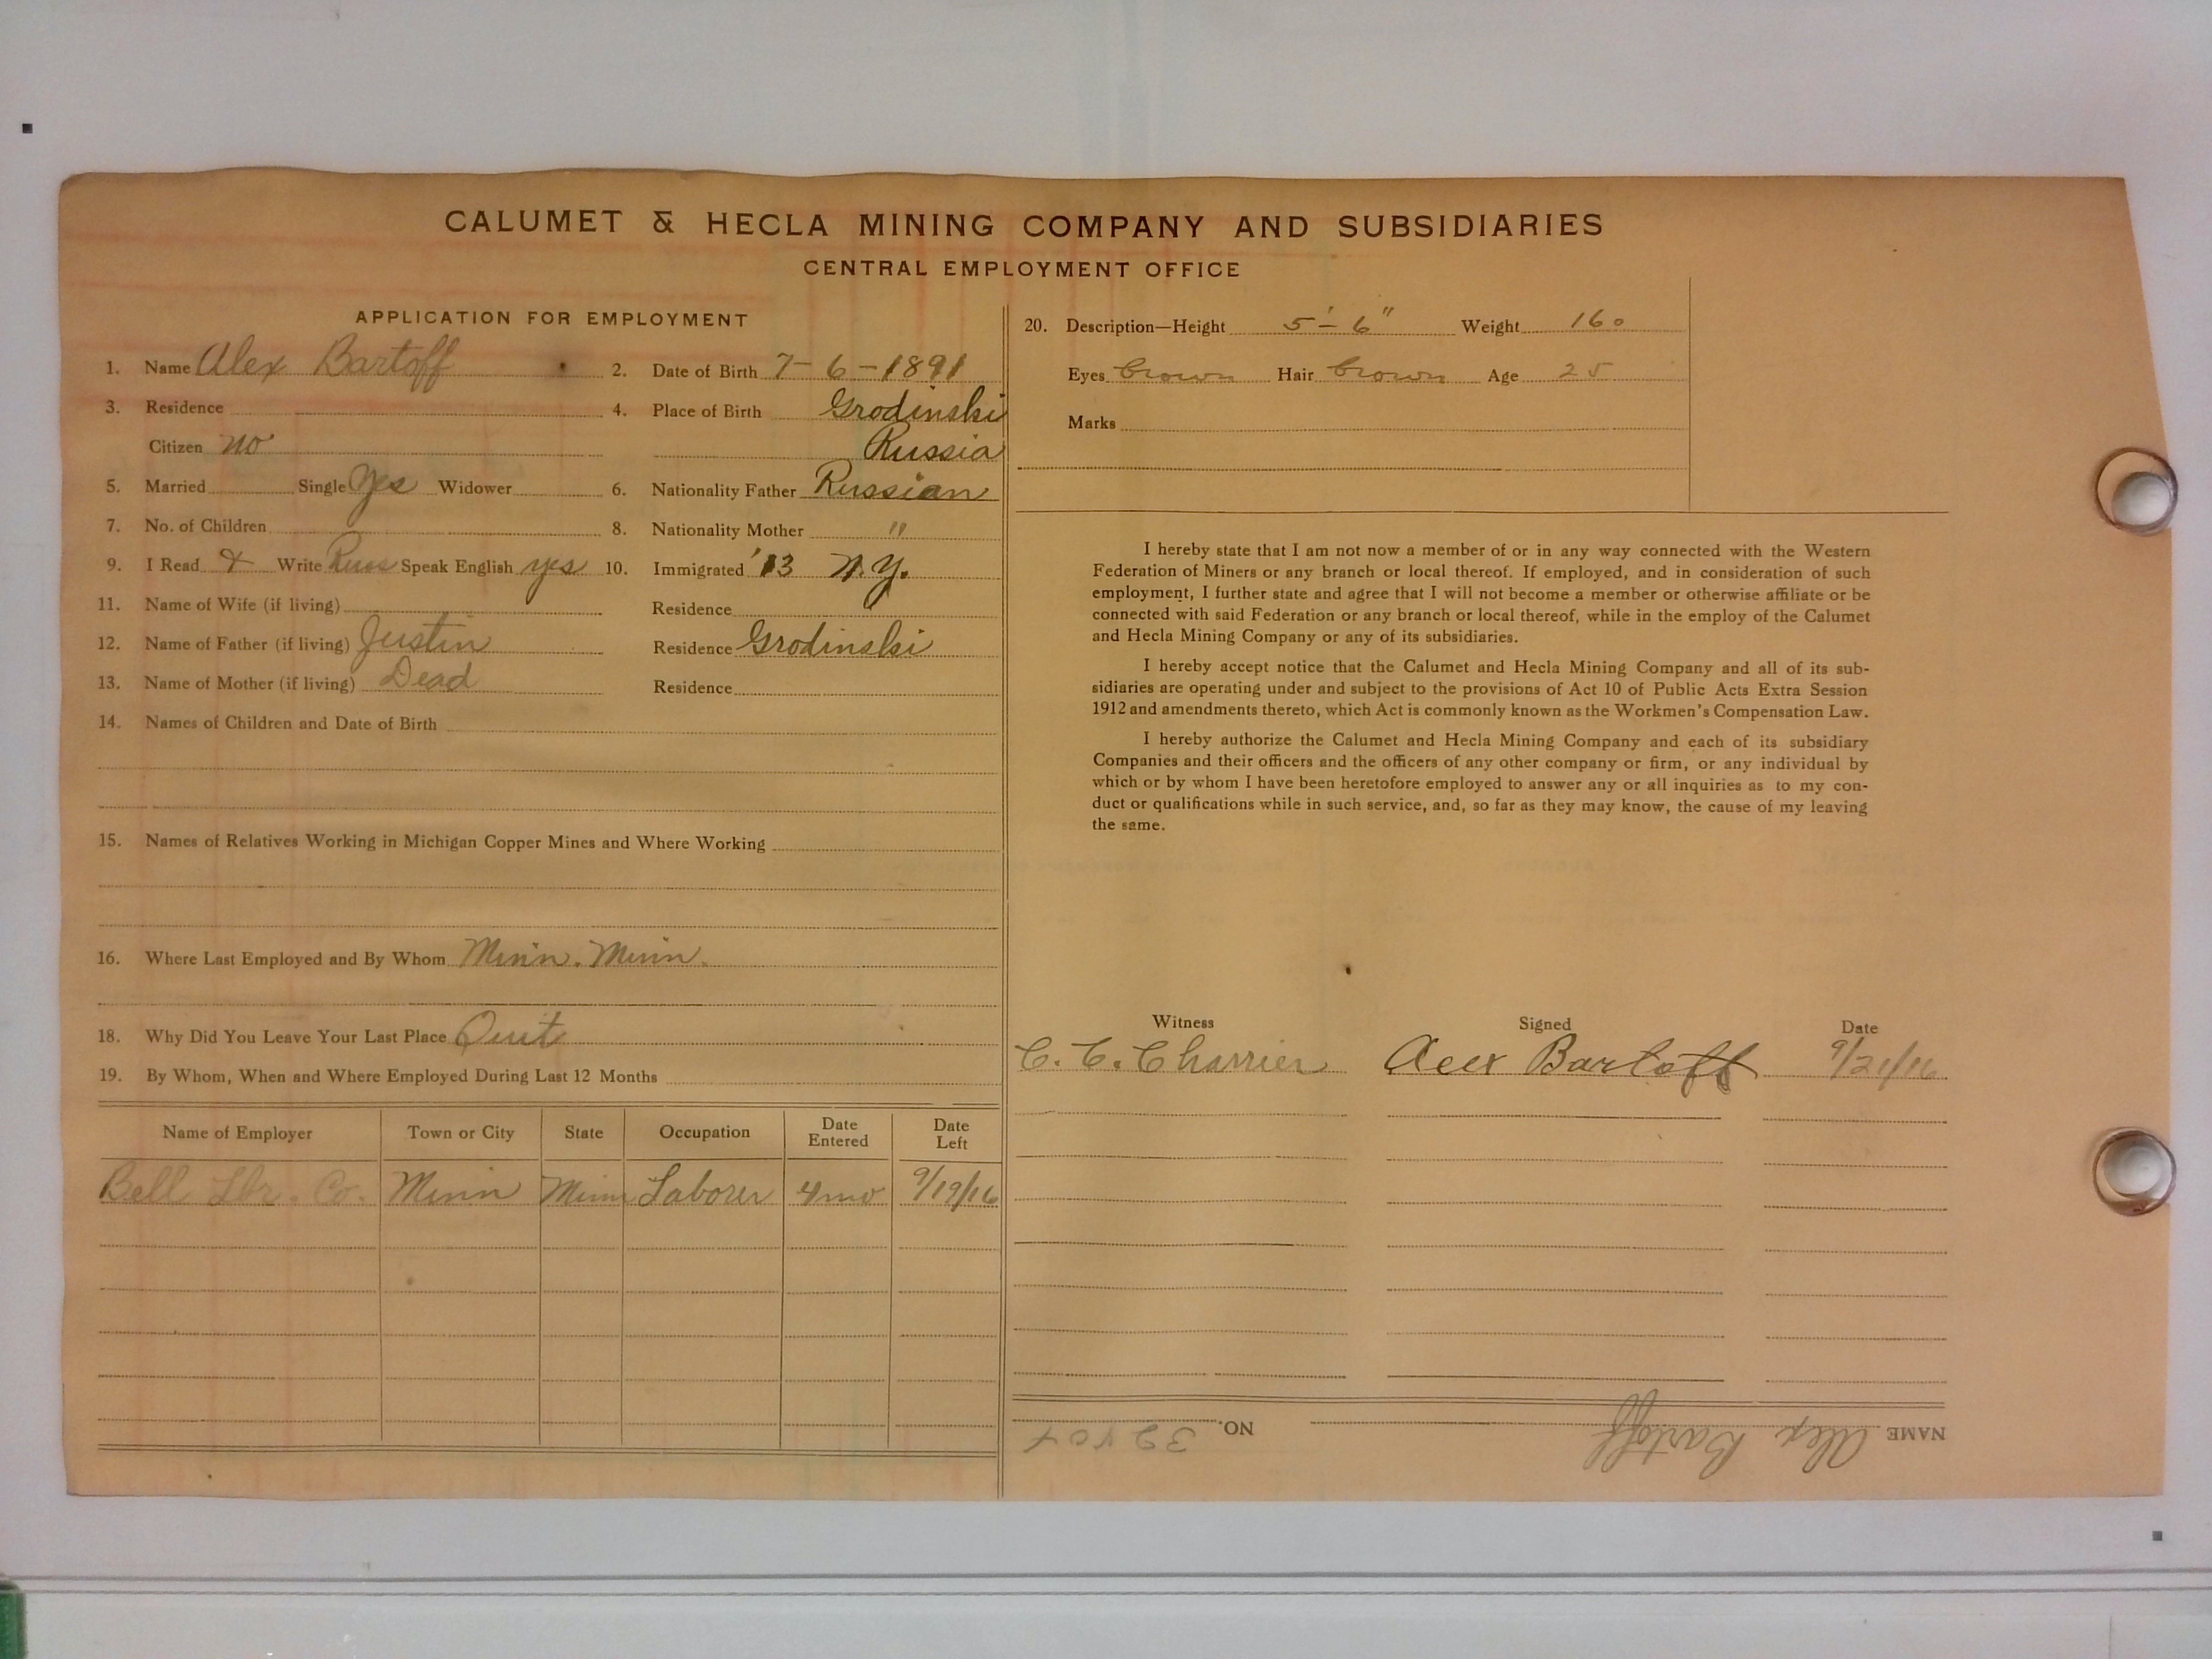 CALUMET & HECLA MINING COMPANY AND SUBSIDIARIES
CENTRAL EMPLOYMENT OFFICE
APPLICATION FOR EMPLOYMENT
1. Name Alex Bartoff 2. Date of Birth 7-6-1891
3. Residence 4. Place of Birth Grodinski
Citizen no Russia
5. Married Single Yes Widower 6. Nationality Father Russian
7. No. of Children 8. Nationality Mother "
9. I Read & Write Russ Speak English yes 10. Immigrated '13 N.Y.
11. Name of Wife (if living) Residence
12. Name of Father (if living) Justin Residence Grodinski
13. Name of Mother (if living) Dead Residence
14. Names of Children and Date of Birth
15. Names of Relatives Working in Michigan Copper Mines and Where Working
16. Where Last Employed and By Whom Minn. Minn.
18. Why Did You Leave Your Last Place Quit
19. By Whom, When and Where Employed During Last 12 Months
Name of Employer Town or City State Occupation Date Entered Date Left
Bell Lbr. Co. Minn Minn Laborer 4mo 9/19/16
20. Description—Height 5'-6" Weight 160
Eyes brown Hair brown Age 25
Marks
I hereby state that I am not now a member of or in any way connected with the Western
Federation of Miners or any branch or local thereof. If employed, and in consideration of such
employment, I further state and agree that I will not become a member or otherwise affiliate or be
connected with said Federation or any branch or local thereof, while in the employ of the Calumet
and Hecla Mining Company or any of its subsidiaries.
I hereby accept notice that the Calumet and Hecla Mining Company and all of its sub-
sidiaries are operating under and subject to the provisions of Act 10 of Public Acts Extra Session
1912 and amendments thereto, which Act is commonly known as the Workmen's Compensation Law.
I hereby authorize the Calumet and Hecla Mining Company and each of its subsidiary
Companies and their officers and the officers of any other company or firm, or any individual by
which or by whom I have been heretofore employed to answer any or all inquiries as to my con-
duct or qualifications while in such service, and, so far as they may know, the cause of my leaving
the same.
Witness Signed Date
C. C. Charrier Alex Bartoff 9/21/16
NAME Alex Bartoff NO.